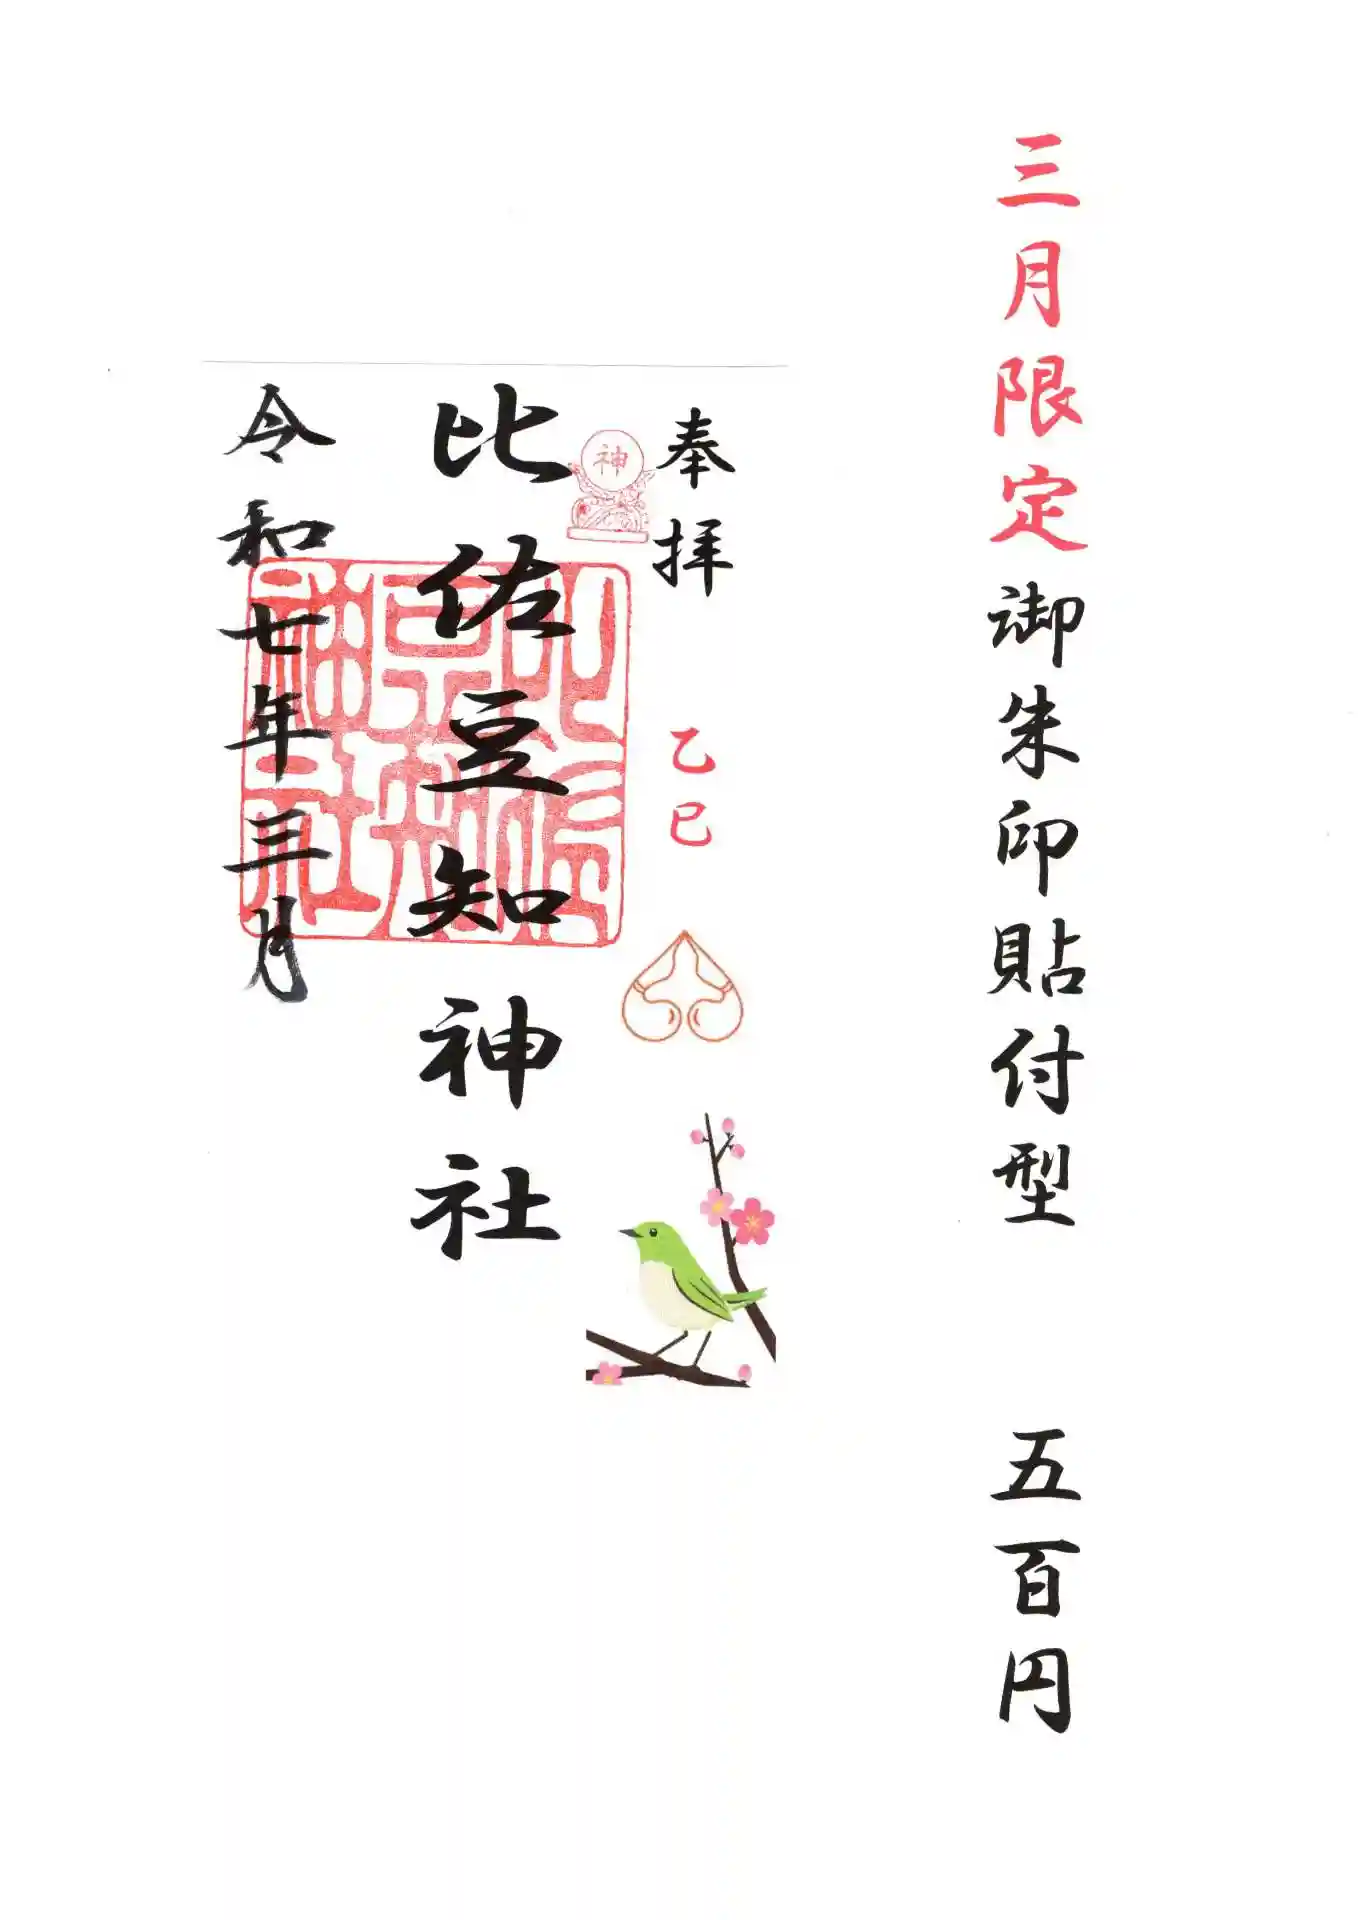 三月限定御朱印貼付型 五百円
奉拝
乙巳
神
比佐豆知神社
令和七年三月